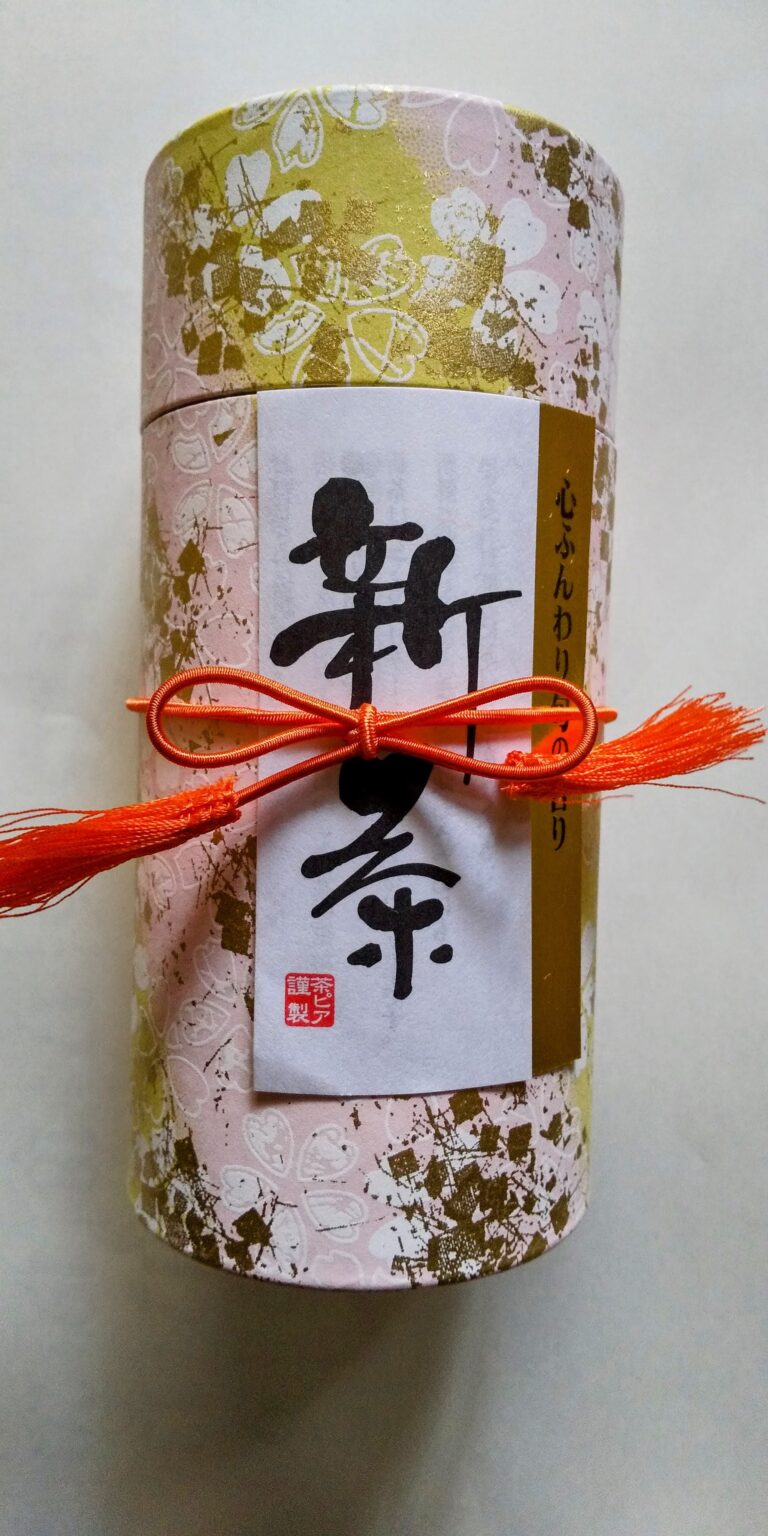 心ふんわり旬の香り
新茶
茶ピア
謹製